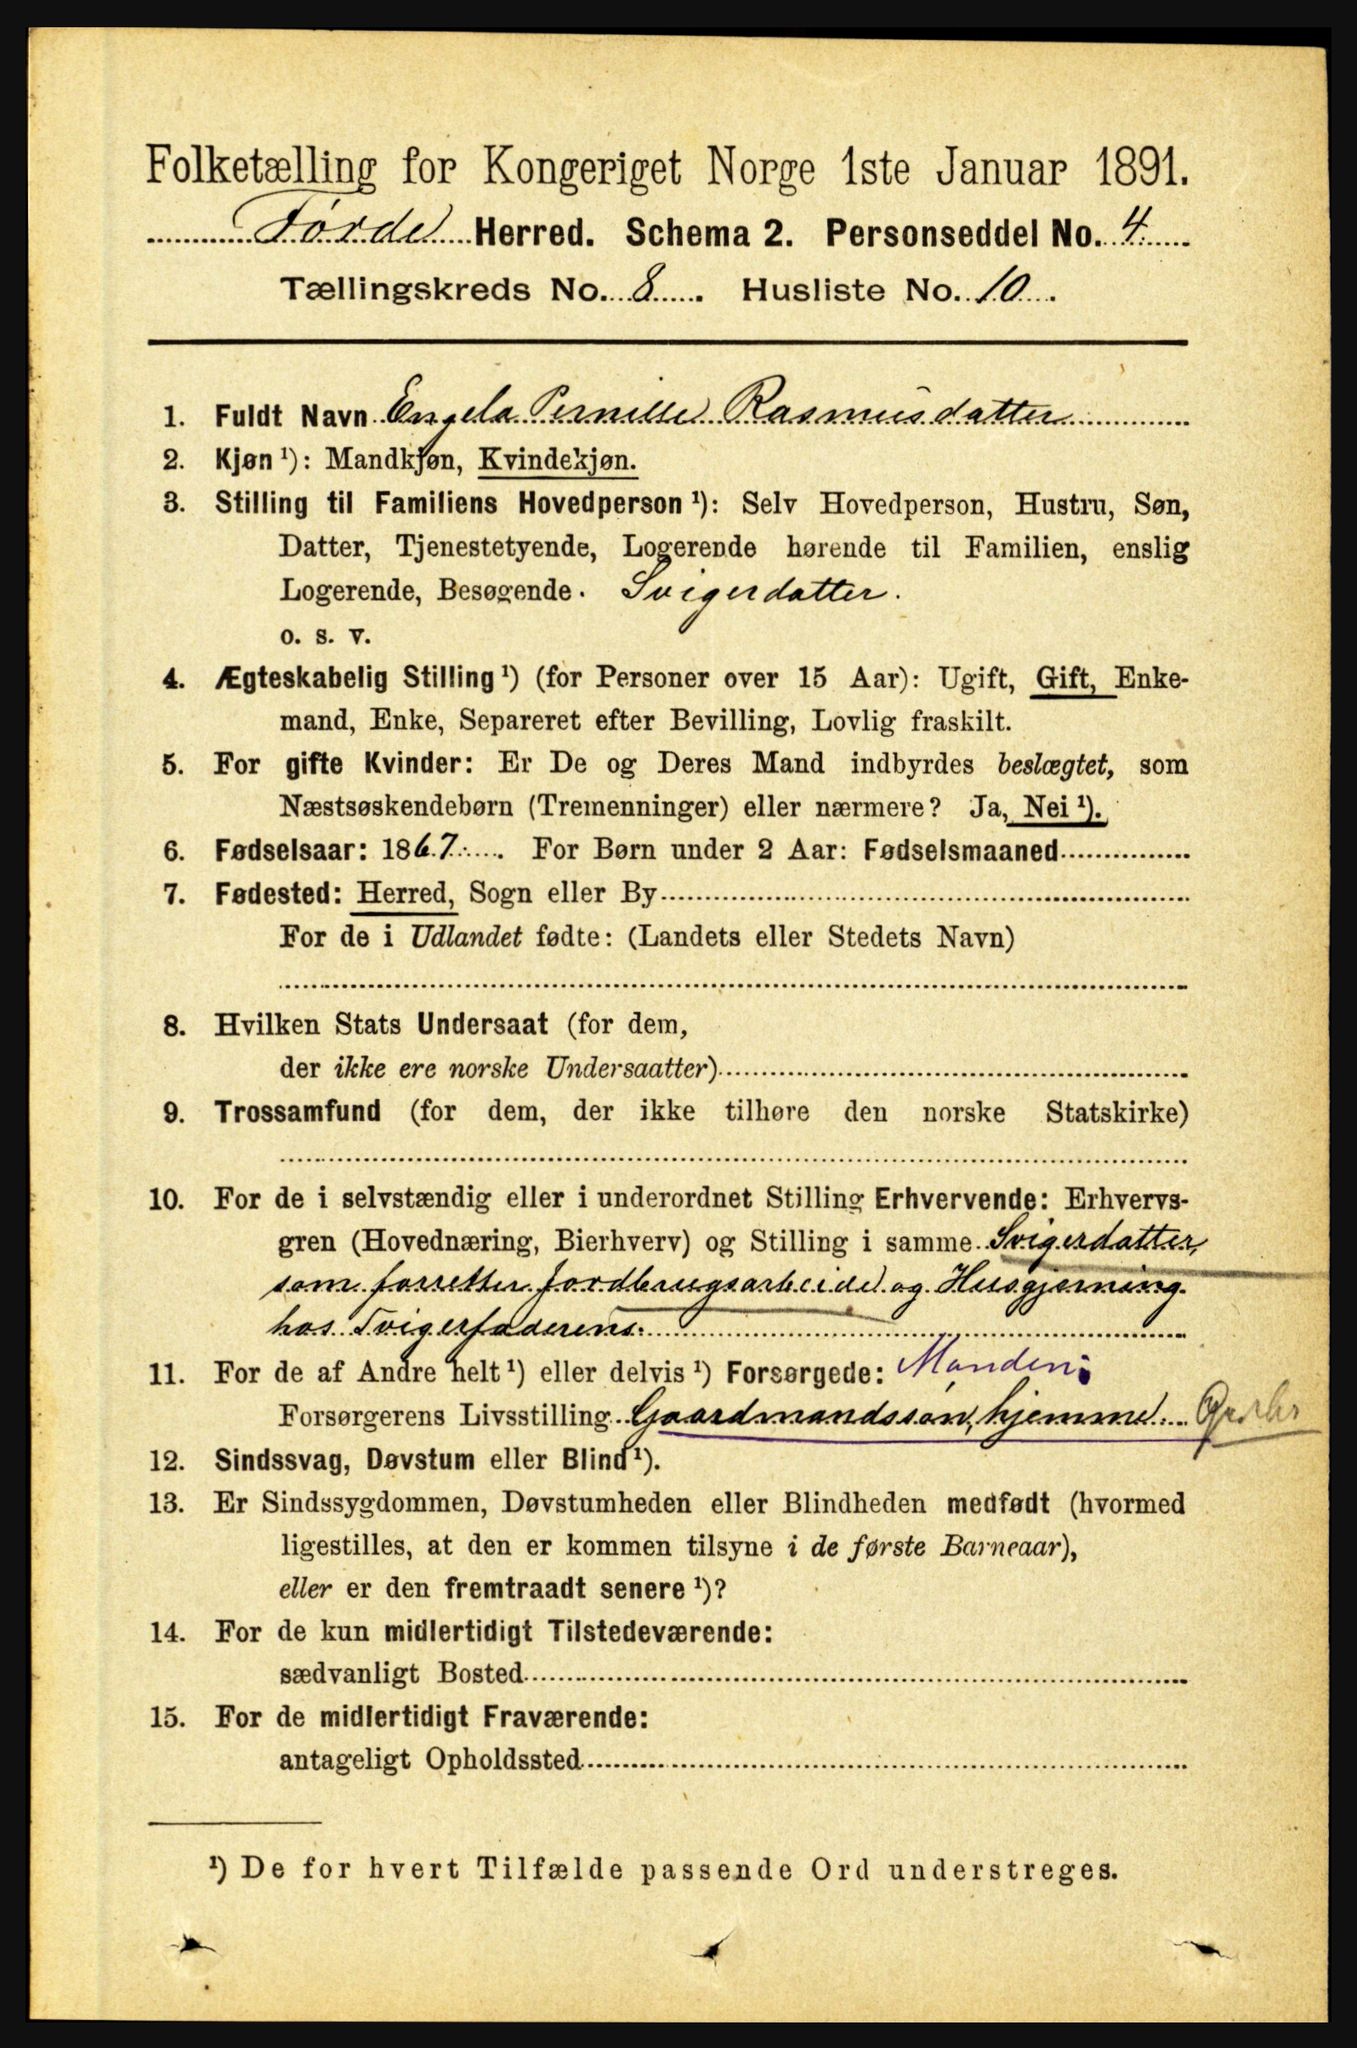 Folketælling for Kongeriget Norge 1ste Januar 1891.
Førde Herred. Schema 2. Personseddel No. 4
Tællingskreds No. 8. Husliste No. 10.
1. Fuldt Navn Engela Pernille Rasmusdatter
2. Kjøn ¹): Mandkjøn, Kvindekjøn.
3. Stilling til Familiens Hovedperson ¹): Selv Hovedperson, Hustru, Søn,
Datter, Tjenestetyende, Logerende hørende til Familien, enslig
Logerende, Besøgende. Svigerdatter.
o. s. v.
4. Ægteskabelig Stilling ¹) (for Personer over 15 Aar): Ugift, Gift, Enke-
mand, Enke, Separeret efter Bevilling, Lovlig fraskilt.
5. For gifte Kvinder: Er De og Deres Mand indbyrdes beslægtet, som
Næstsøskendebørn (Tremenninger) eller nærmere? Ja, Nei ¹).
6. Fødselsaar: 1867. For Børn under 2 Aar: Fødselsmaaned
7. Fødested: Herred, Sogn eller By
For de i Udlandet fødte: (Landets eller Stedets Navn)
8. Hvilken Stats Undersaat (for dem,
der ikke ere norske Undersaatter)
9. Trossamfund (for dem, der ikke tilhøre den norske Statskirke)
10. For de i selvstændig eller i underordnet Stilling Erhvervende: Erhvervs-
gren (Hovednæring, Bierhverv) og Stilling i samme Svigerdatter,
som forretter Jordbrugsarbeide og Husgjerning
hos Svigerfaderens.
11. For de af Andre helt ¹) eller delvis ¹) Forsørgede: Manden:
Forsørgerens Livsstilling Gaardmandssøn, hjemme.
12. Sindssvag, Døvstum eller Blind ¹).
13. Er Sindssygdommen, Døvstumheden eller Blindheden medfødt (hvormed
ligestilles, at den er kommen tilsyne i de første Barneaar),
eller er den fremtraadt senere ¹)?
14. For de kun midlertidigt Tilstedeværende:
sædvanligt Bosted
15. For de midlertidigt Fraværende:
antageligt Opholdssted
¹) De for hvert Tilfælde passende Ord understreges.